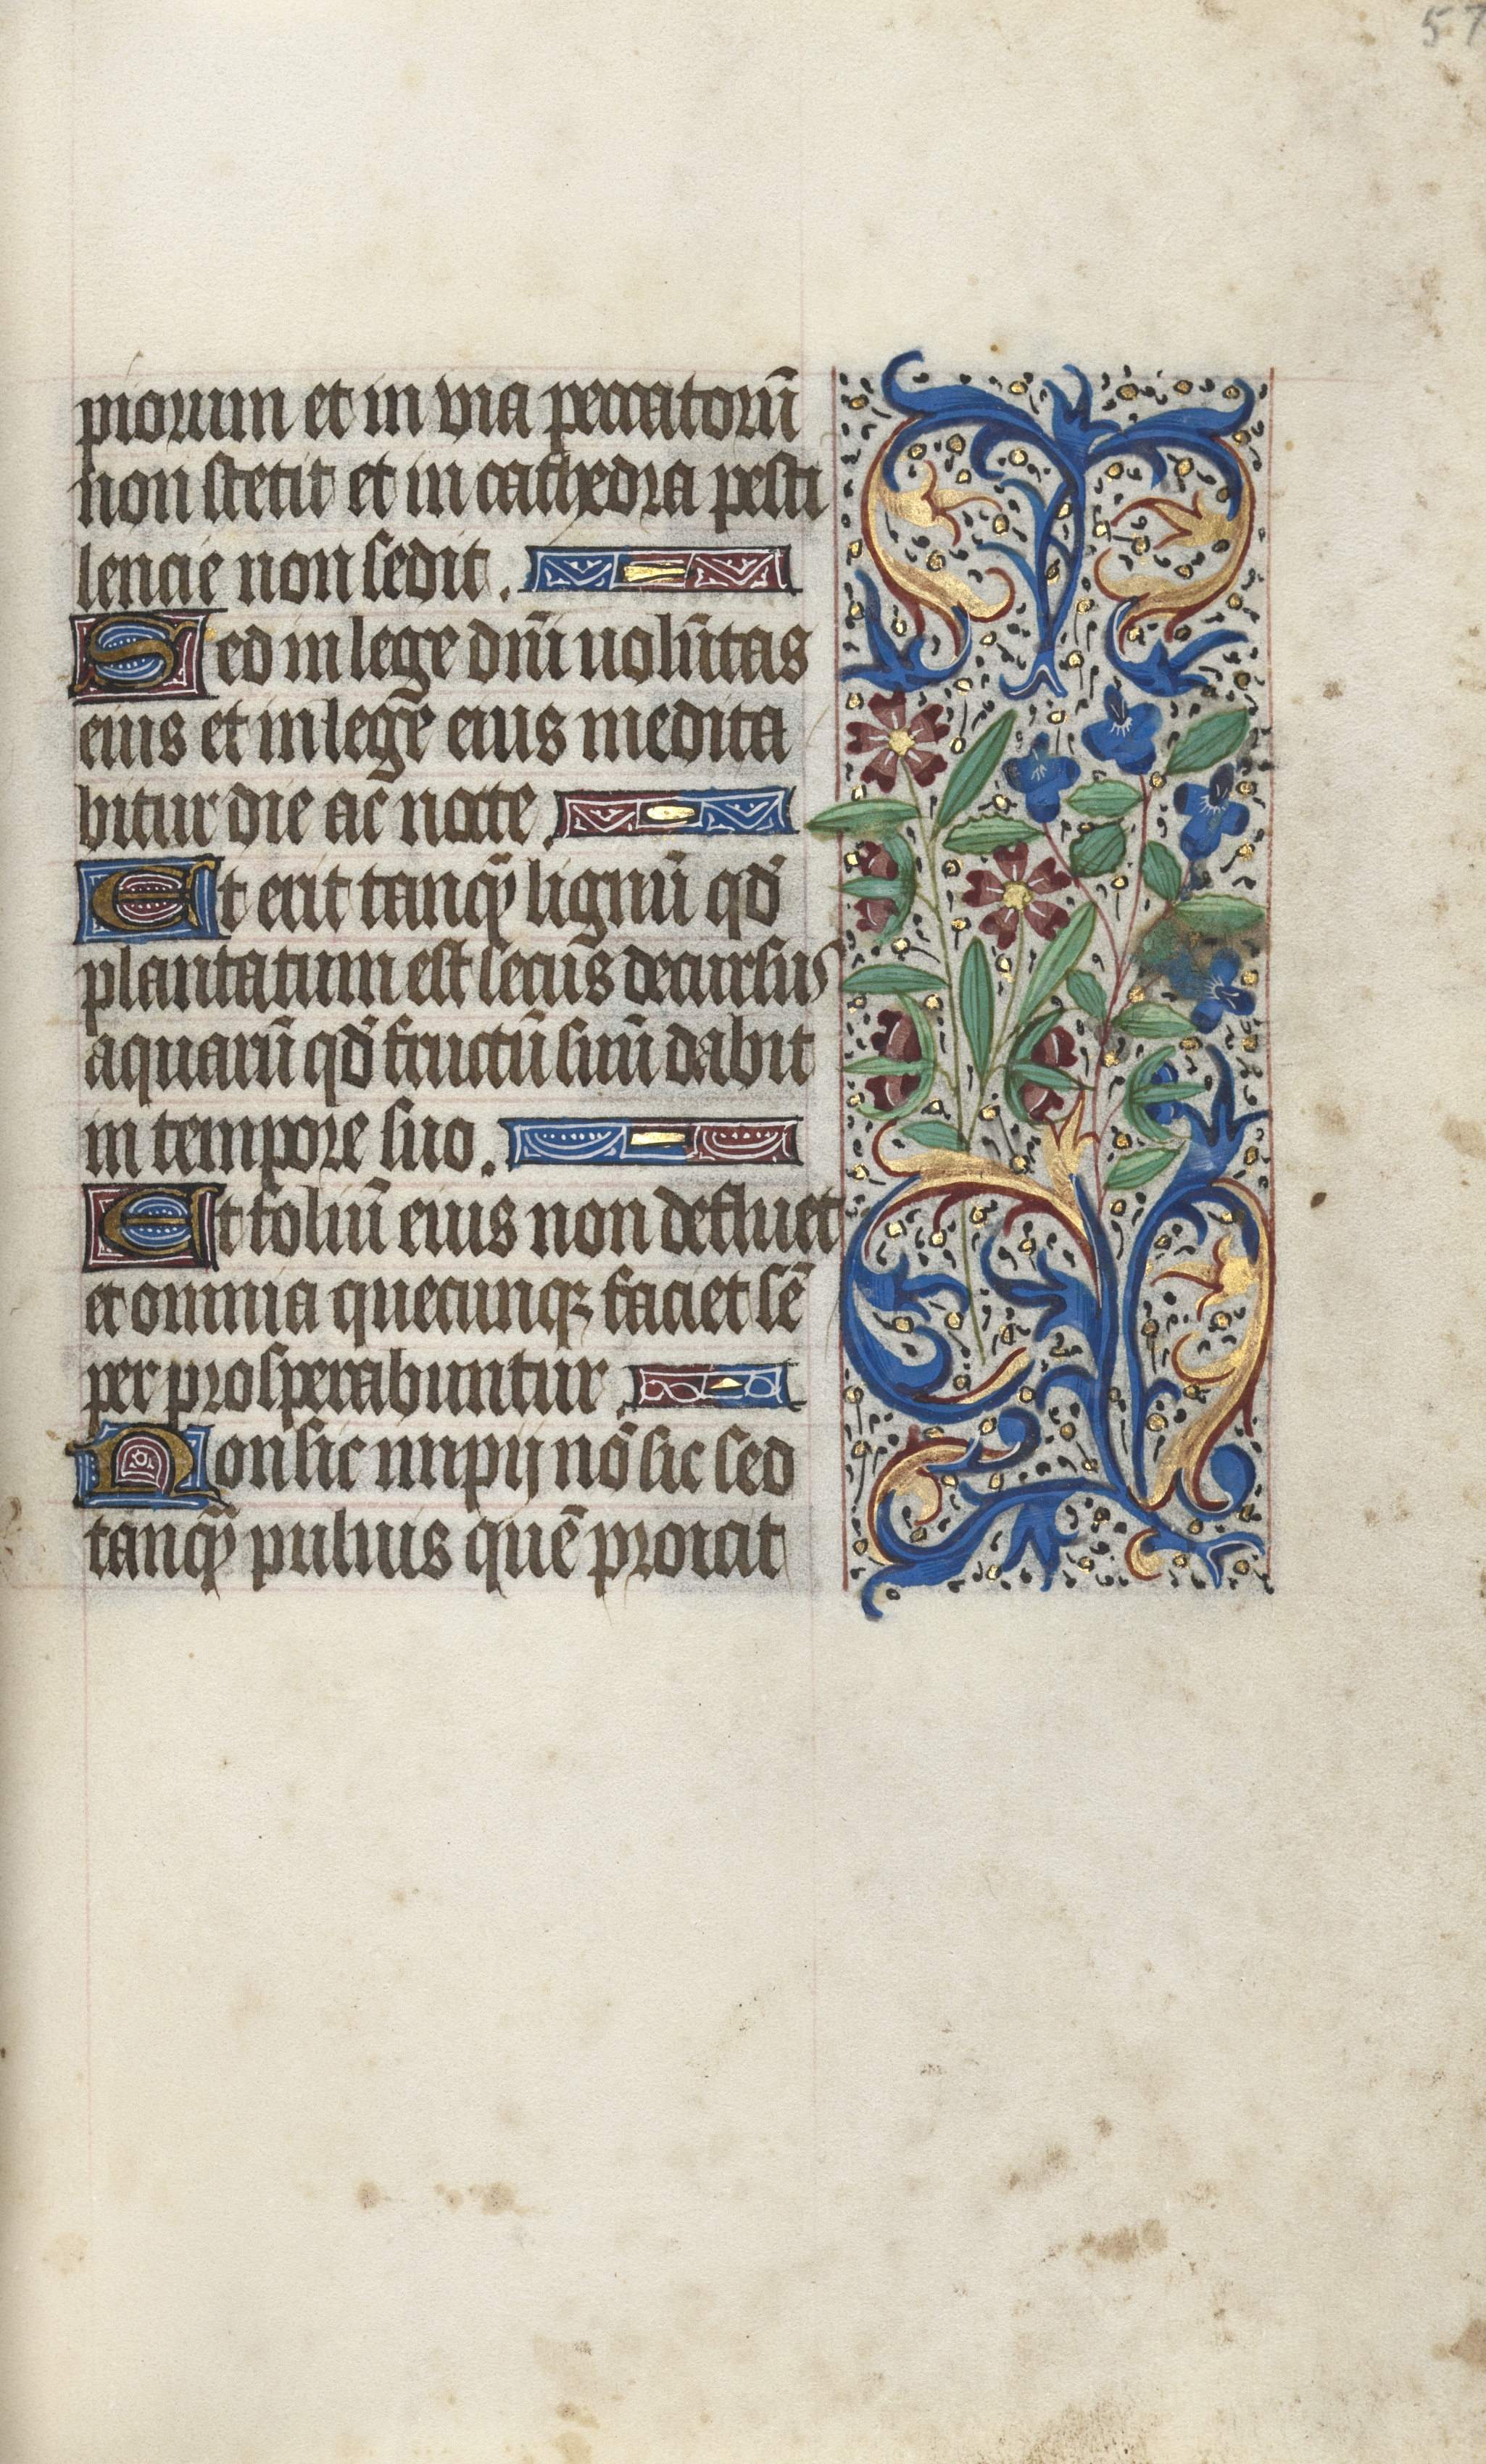 57
piorum et in via peccatorũ
non stetit et in cathedra pesti
lencie non sedit.
Sed in lege dñi volũtas
eius et in lege eius medita
bitur die ac nocte.
Et erit tanqȝ lignũ qd̃
plantatum est secus decursus
aquarũ qd̃ fructũ suũ dabit
in tempore suo.
Et foliũ eius non defluet
et omnia quecunqȝ faciet sẽ
per prosperabuntur.
Non sic impij nõ sic sed
tanqȝ puluis quẽ proicit